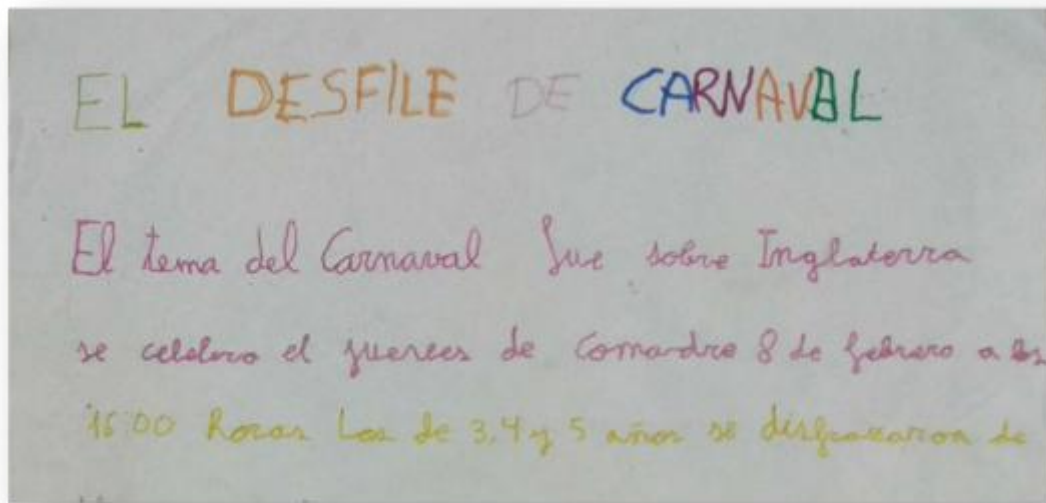 EL DESFILE DE CARNAVAL
El tema del Carnaval fue sobre Inglaterra
se celebro el jueves de comadre 8 de febrero a las
16:00 Horas Los de 3,4 y 5 años se disfrazaron de